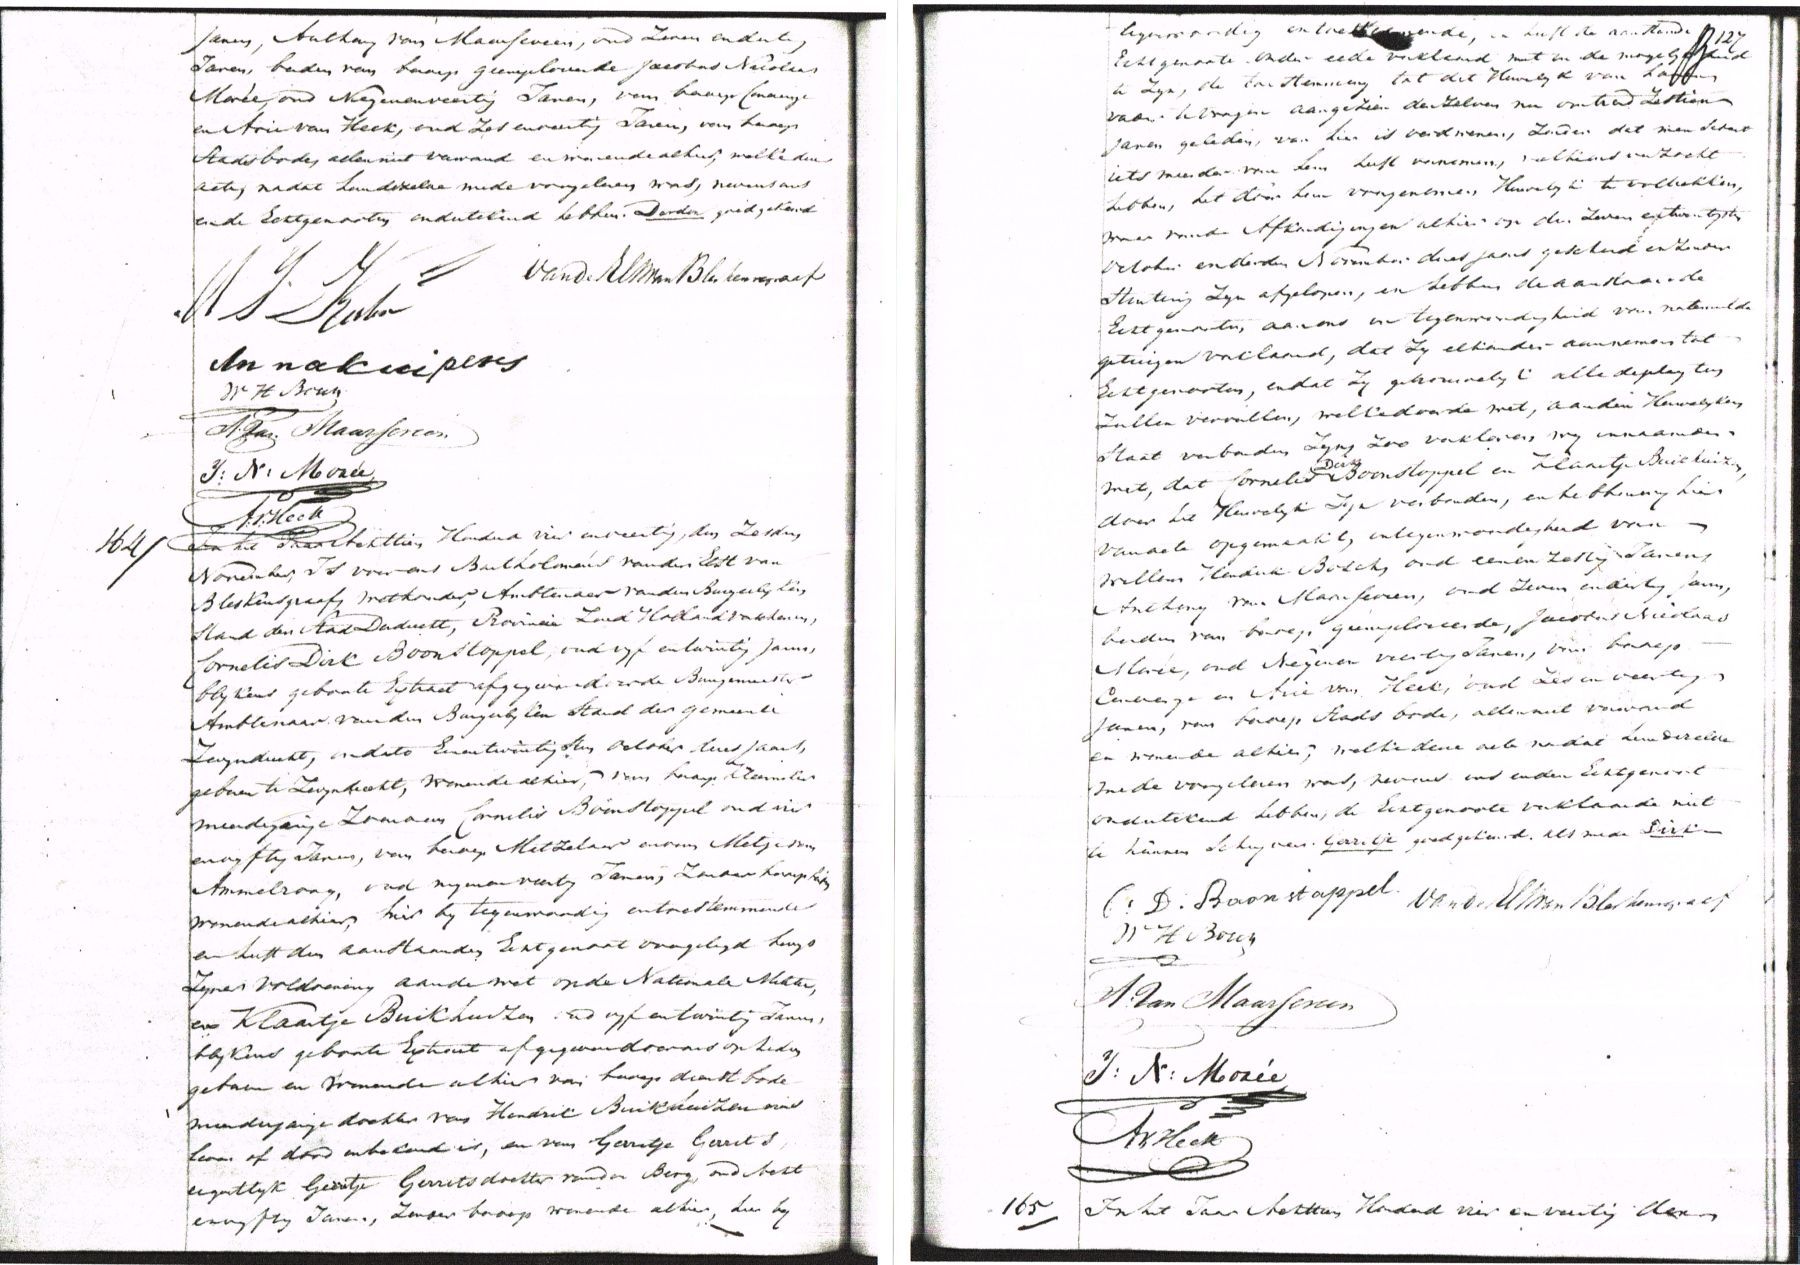 Jaren, Anthony van Maarseveen, oud Zeven en dertig
Jaren, beiden van beroep geemploieerde Jacobus Nicolaas
Morée, oud Negenenveertig Jaren, van beroep Concierge
en Arie van Heck, oud Zes en veertig Jaren, van beroep
Stadsbode, allen niet verwand en wonende alhier, welke deze
acte, nadat hun dezelve mede voorgelezen was, nevens ons
en de Echtgenooten onderteekend hebben. Derden goedgekeurd
van d. Elst van Bleskensgraaf
Anna kuipers
W H Bosch
A. Van Maarseveen
J: N: Morée
A. v. Heck
164/ In het Jaar Achttien Honderd vier en veertig, den Zesden
November, Is voor ons Bartholomeus van der Elst van
Bleskensgraaf, Wethouder, Ambtenaar van den Burgerlyken
Stand der Stad Dordrecht, Provincie Zuid Holland verschenen,
Cornelis Dirk Boonstoppel, oud vyf en twintig Jaren,
blykens geboorte Extract afgegeven door de Burgemeester
Ambtenaar van den Burgerlyken Stand der Gemeente
Zwyndrecht, in dato Eenentwintigsten October dezes Jaars,
geboren te Zwyndrecht, wonende alhier, van beroep
meerderjarige Zoon van Cornelis Boonstoppel oud vier
en vyftig Jaren, van beroep Metzelaar en van Metje van
Ammelrooy, oud negen en veertig Jaren, Zonder beroep beide
wonende alhier, hier by tegenwoordig en toestemmende
en heeft den aanstaanden Echtgenoot voorgelegd bewys
Zyner voldoening aan de wet op de Nationale Militie,
en Klaartje Buikhuizen oud vyf en twintig Jaren,
blykens geboorte Extract afgegeven door ons op heden
geboren en wonende alhier van beroep dienstbode
meerderjarige dochter van Hendrik Buikhuizen wiens
leven of dood onbekend is, en van Gerretje Gerrets
eigentlyk Geertje Gerrets dochter van den Berg, oud Acht
en vyftig Jaren, Zonder beroep wonende alhier, hier by
127
tegenwoordig en toestemmende, en heeft de aanstaande
Echtgenoote onder eede verklaard niet in de mogelykheid
te Zyn, de toestemming tot dit Huwelyk van haren
vader te vragen aangezien dezelven nu omtrend Zestien
Jaren geleden, van hier is verdwenen, Zonder dat men sedert
iets meerder van hem heeft vernomen, welke ons verzocht
hebben, het door hun voorgenomen Huwelyk te voltrekken,
waar van de Afkondigingen alhier op den Zeven en twintigsten
October en derden November dezes Jaars geschied en Zonder
Stuiting Zyn afgelopen, en hebben de aanstaande
Echtgenooten, aan ons in tegenwoordigheid van natemelden
getuigen verklaard, dat Zy elkander aannemen tot
Echtgenooten, en dat Zy getrouwelyk alle de pligten
Zullen vervullen, welke door de wet, aan den Huwelyken
Staat verbonden Zyn, Zoo verklaren wy in naam der
wet, dat Cornelis Dirk Boonstoppel en Klaartje Buikhuizen,
door het Huwelyk Zyn verbonden, en hebben wy hier
van acte opgemaakt, in tegenwoordigheid van
Willem Hendrik Bosch, oud eenen Zestig Jaren,
Anthony van Maarseveen, oud Zeven en dertig Jaren,
beiden van beroep geemploieerde, Jacobus Nicolaas
Morée, oud Negen en veertig Jaren, van beroep
Concierge en Arie van Heck, oud Zes en veertig
Jaren, van beroep Stads bode, allen niet verwand
en wonende alhier, welke deze acte nadat hun dezelve
mede voorgelezen was, nevens ons en den Echtgenoot
onderteekend hebben, de Echtgenoote verklaarde niet
te kunnen Schryven. Gerretje goedgekeurd. als mede Dirk
C: D: Boonstoppel. van d. Elst van Bleskensgraaf
W H Bosch
A. Van Maarseveen
J: N: Morée
A v Heck
165 In het Jaar Achttien Honderd vier en veertig den